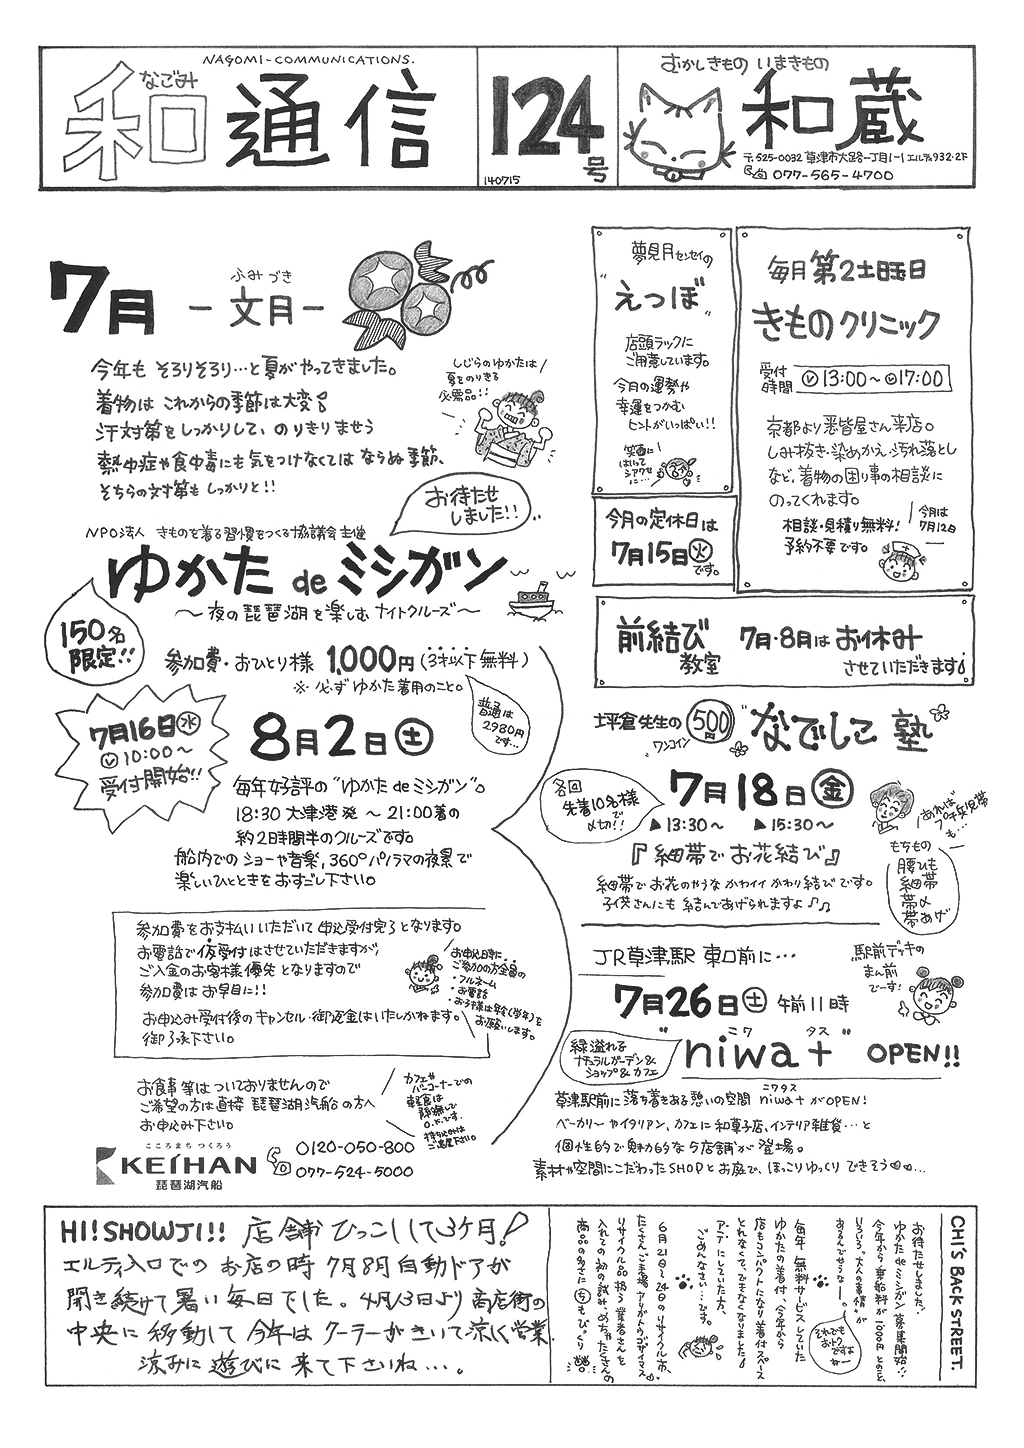 NAGOMI-COMMUNICATIONS.
なごみ
和通信
124号
140715
むかしきもの いまきもの
和蔵
〒525-0032 草津市大路一丁目1-1 エルティ932・2F
077-565-4700
7月
ふみづき
－文月－
今年も そろりそろり…と夏がやってきました。
着物は これからの季節は大変!
汗対策をしっかりして、のりきりませう
熱中症や食中毒にも気をつけなくては ならぬ季節、
そちらの対策も しっかりと!!
しじらのゆかたは
夏をのりきる
必需品!!
お待たせ
しました!!
NPO法人 きものを着る習慣をつくる協議会主催
ゆかた de ミシガン
～夜の琵琶湖を楽しむ ナイトクルーズ～
150名
限定!!
参加費・おひとり様 1,000円（3才以下無料）
※必ず ゆかた着用のこと。
普通は
2980円
です…
7月16日㊌
10:00～
受付開始!!
8月2日㊏
毎年好評の"ゆかた de ミシガン"。
18:30 大津港発 ～ 21:00着の
約2時間半のクルーズです。
船内でのショーや音楽,360°パノラマの夜景で
楽しいひとときをおすごし下さい。
参加費をお支払いいただいて 申込受付完了となります。
お電話で仮受付はさせていただきますが、
ご入金のお客様優先となりますので
参加費はお早目に!!
お申込み受付後のキャンセル・御返金はいたしかねます。
御了承下さい。
お申込時に…
ご参加の方全員の
・フルネーム
・お電話
・お子様は年令(学年)を
お願いします。
お食事等はついておりませんので
ご希望の方は直接 琵琶湖汽船の方へ
お申込み下さい。
カフェや
バーコーナーでの
軽食は
O.K.です。
こころまち つくろう
KEIHAN
琵琶湖汽船
0120-050-800
077-524-5000
夢見月センセイの
"えつぼ"
店頭ラックに
ご用意しています。
今月の運勢や
幸運をつかむ
ヒントがいっぱい!!
笑顔に
シアワセ
に…
今月の定休日は
7月15日㊋
です。
毎月 第2土曜日
きものクリニック
受付
時間
13:00～17:00
京都より悉皆屋さん来店。
しみ抜き・染めかえ、汚れ落とし
など、着物の困り事の相談に
のってくれます。
相談・見積り無料!
予約不要です。
今月は
7月12日
前結び
教室
7月・8月は お休み
させていただきます。
坪倉先生の
ワンコイン
500円
"なでしこ塾"
各回
先着10名様
で
〆切!!
7月18日㊎
▲13:30～ ▲15:30～
『細帯でお花結び』
細帯でお花のやうな かわイイ かわり結びです。
子供さんにも 結んであげられますよ♪♫
あれば
プチ兵児帯
も…
もちもの
腰ひも
細帯
帯〆
帯あげ
JR草津駅 東口前に…
7月26日㊏ 午前11時
駅前デッキの
まん前
でーす!
緑溢れる
ナチュラルガーデン&
ショップ&カフェ
ニワ タス
"niwa+" OPEN!!
草津駅前に落ち着きある憩いの空間 niwa+がOPEN!
ニワタス
ベーカリーやイタリアン、カフェに和菓子店、インテリア雑貨…と
個性的で魅力的な5店舗が登場。
素材や空間にこだわったSHOPとお庭で、ほっこりゆっくりできそう♡♡…
HI!SHOWJI!! 店舗ひっこしして3ケ月!
エルティ入口でのお店の時 7月8月自動ドアが
開き続けて暑い毎日でした。4月13日より商店街の
中央に移動して今年はクーラーがきいて涼しく営業
涼みに遊びに来て下さいね…。
CHI'S BACK STREET.
お待たせしました!
ゆかた de ミシガン 募集開始!!
今年から乗船料が1000円とのこと、
いろいろ、大人の事情が
あるんでせうなー。
それでも
おトク
ですよ
毎年 無料サービスしていた
ゆかたの着付、今年から
店もコンパクトになり着付スペース
とれなくて、できなくなりました。
アテにしていた方、
ごめんなさい…です。
6月21日～24日のリサイクル市、
たくさんご来場 アリがトウゴザイマス。
リサイクル品扱う業者さんを
入れての初の試み、めちゃたくさんの
商品の多さに ち もびっくり